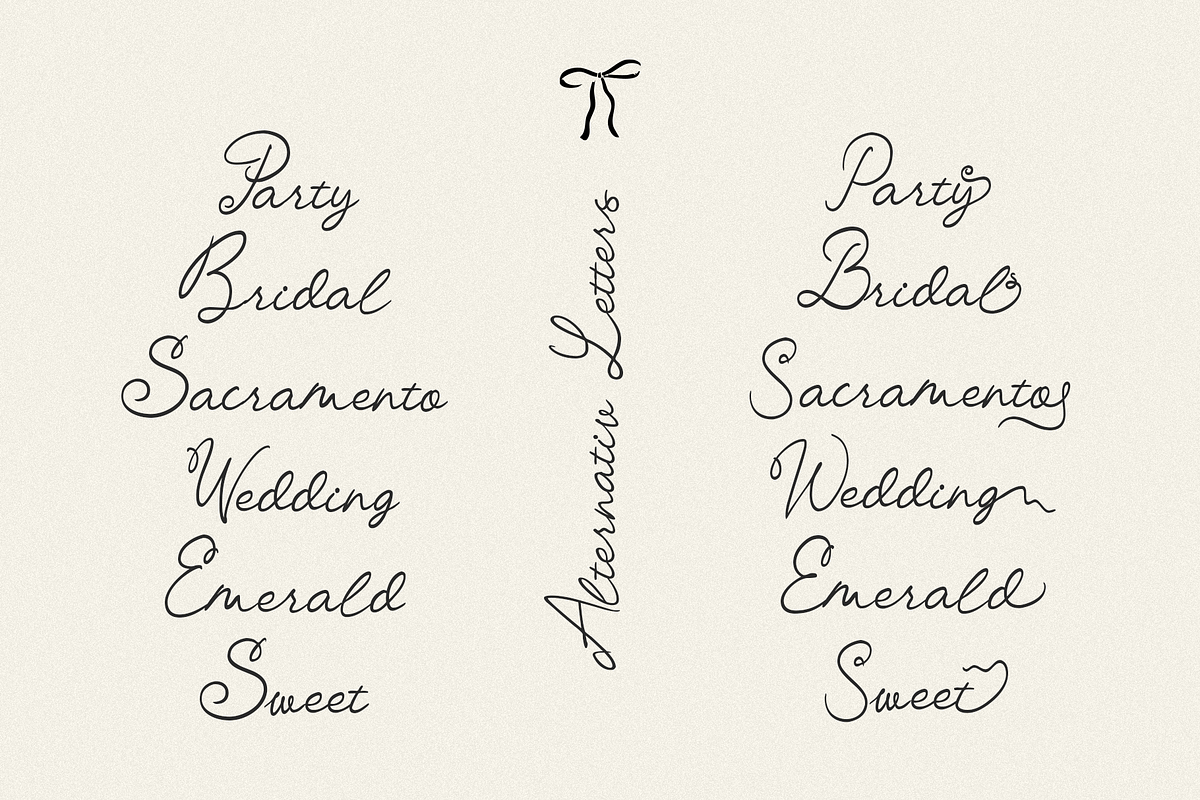 Party
Bridal
Sacramento
Wedding
Emerald
Sweet
Alternativ Letters
Party
Bridal
Sacramento
Wedding
Emerald
Sweet